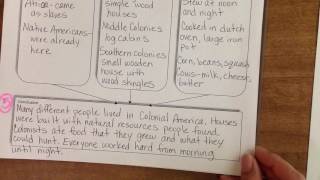 Africa - came
as slaves
Native Americans -
were already
here
simple wood
houses
Middle Colonies
log cabins
Southern colonies
small wooden
house with
wood shingles
Stew at noon
and night
Cooked in dutch
oven, large iron
pot
Corn, beans, squash
Cows - milk, cheese,
butter
Conclusion
Many different people lived in Colonial America. Houses
were built with natural resources people found.
Colonists ate food that they grew and what they
could hunt. Everyone worked hard from morning
until night.